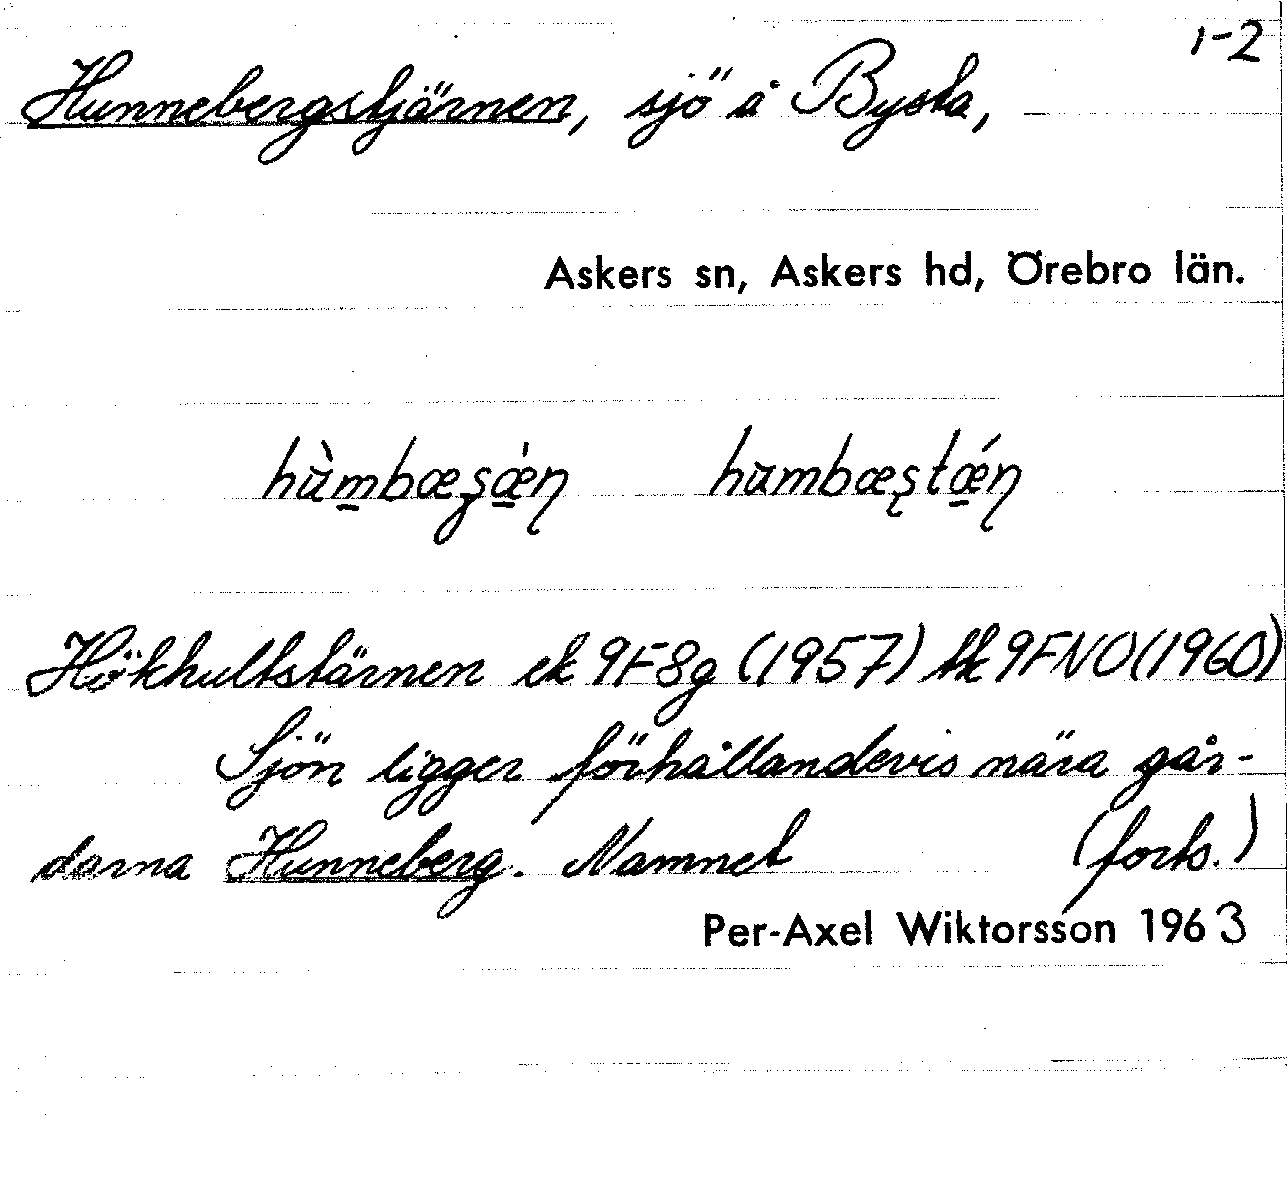 1-2
Hunnebergstjärnen, sjö å Bysta,
Askers sn, Askers hd, Örebro län.
Hökhultstärnen ek 9F8g (1957) tk 9FNO (1960)
Sjön ligger förhållandevis nära går-
darna Hunneberg. Namnet (forts.)
Per-Axel Wiktorsson 1963